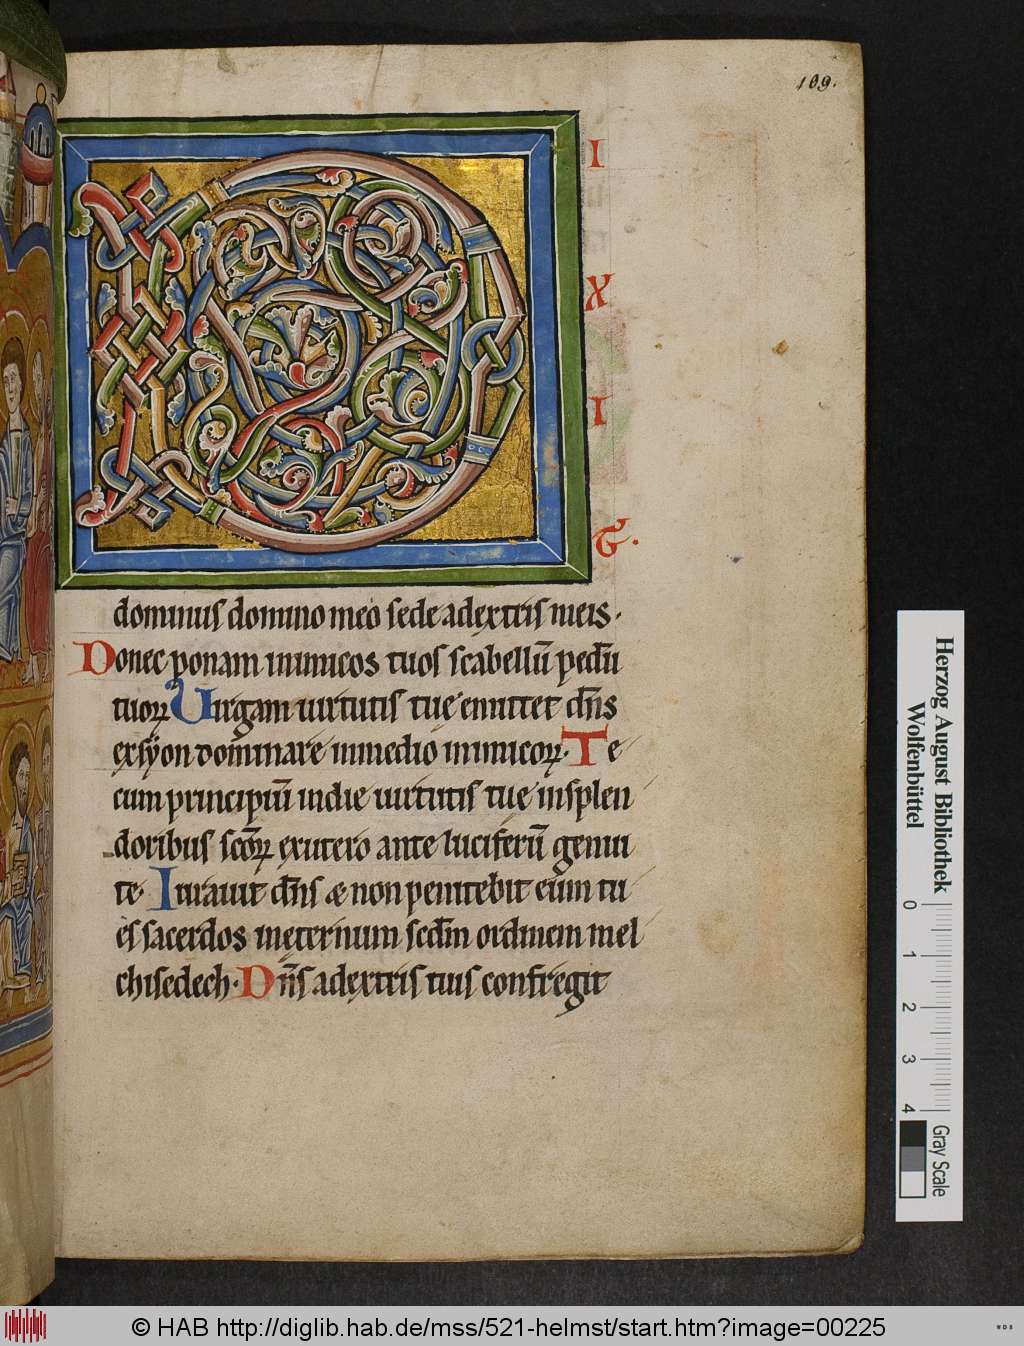 109.
D
I
X
I
G.
dominus domino meo sede adextris meis.
Donec ponam inimicos tuos scabellū pedū
tuoꝝ Uirgam uirtutis tuę emittet dn̄s
exsyon dominare inmedio inimicoꝝ. Te
cum principiū indie uirtutis tue insplen
doribus scōꝝ exutero ante luciferū genui
te. Iurauit dn̄s & non penitebit eum tu
es sacerdos inęternum scdm̄ ordinem mel
chisedech. Dn̄s adextris tuis confregit
Herzog August Bibliothek
Wolfenbüttel
0 1 2 3 4
Gray Scale
© HAB http://diglib.hab.de/mss/521-helmst/start.htm?image=00225